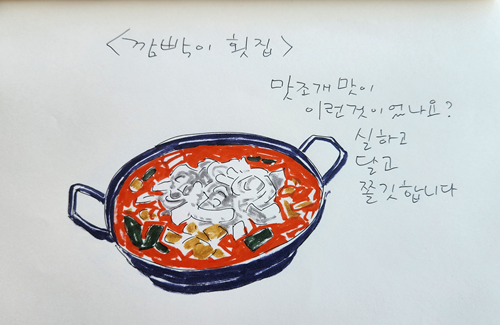 <깜빡이 횟집>
맛조개 맛이
이런것이었나요?
실하고
달고
쫄깃합니다